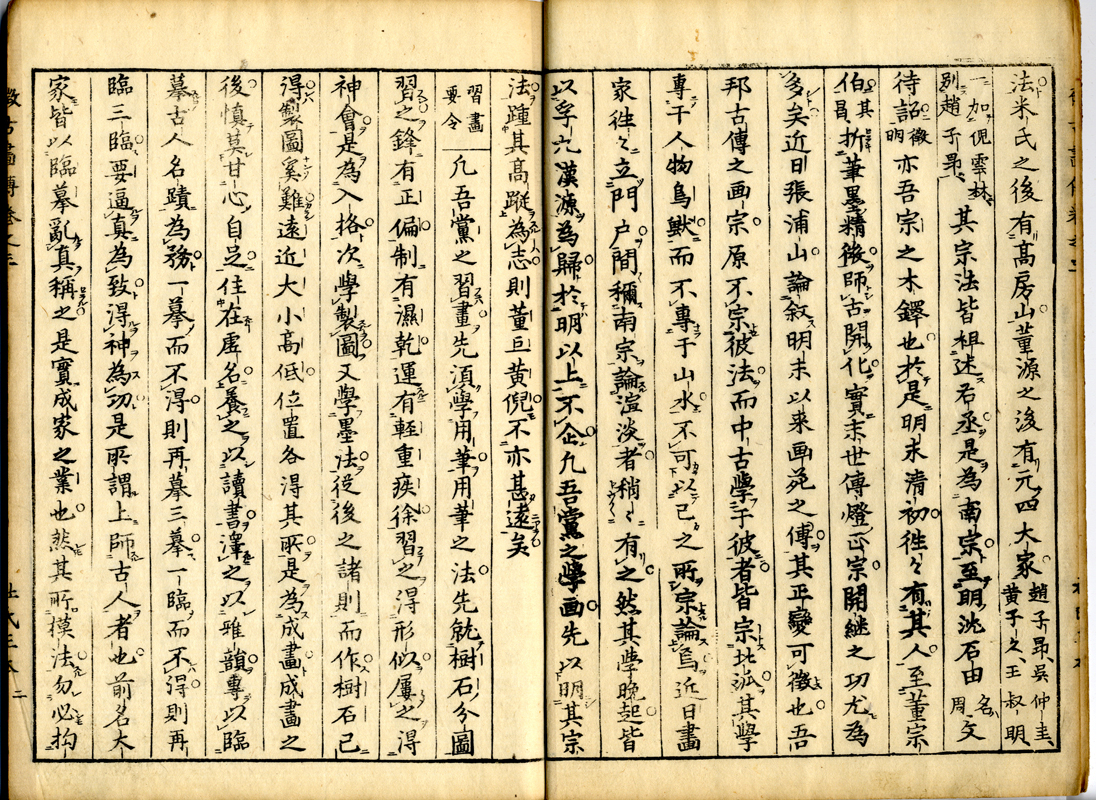 法米氏之後有高房山董源之後有元四大家趙子昂、吳仲圭、黄子久、王叔明、
一加倪雲林、別趙子昂、其宗法皆祖述若丞是為南宗至明沈石田名周文
待詔徵明亦吾宗之木鐸也於是明末清初徃〻有其人至董宗
伯其昌折筆墨精微師古開化實末世傳燈正宗開継之功尤為
多矣近日張浦山論敘明末以来画苑之傳其正變可徵也吾
邦古傳之画宗原不宗彼法而中古學于彼者皆宗北派其學
專于人物鳥獣而不專于山水不可以已之所宗論焉近日畫
家徃〻立門戸間稱南宗論渲淡者稍〻有之然其學晚起皆
以孚九漢源為歸於明以上不企凢吾黨之學画先以明其宗
法踵其高蹤為志則董巨黄倪不亦甚遠矣
習畫要令 凢吾黨之習畫先須學用筆用筆之法先就樹石分圖
習之鋒有正偏制有濕乾運有輕重疾徐習之得形似屢之得
神會是為入格次學製圖又學墨法従後之諸則而作樹石已
得製圖奚難遠近大小高低位置各得其所是為成畫成畫之
後慎莫甘心自足住在虚名養之以讀書澤之以雅韻專以臨
摹古人名蹟為務一摹而不得則再摹三摹一臨而不得則再
臨三臨要逼真為致得神為功是所謂上師古人者也前名大
家皆以臨摹亂真稱之是實成家之業也然其所模法勿必拘